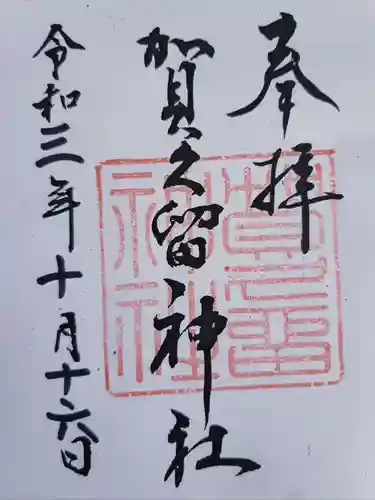 奉拝
加賀之久留神社
令和三年十月十六日